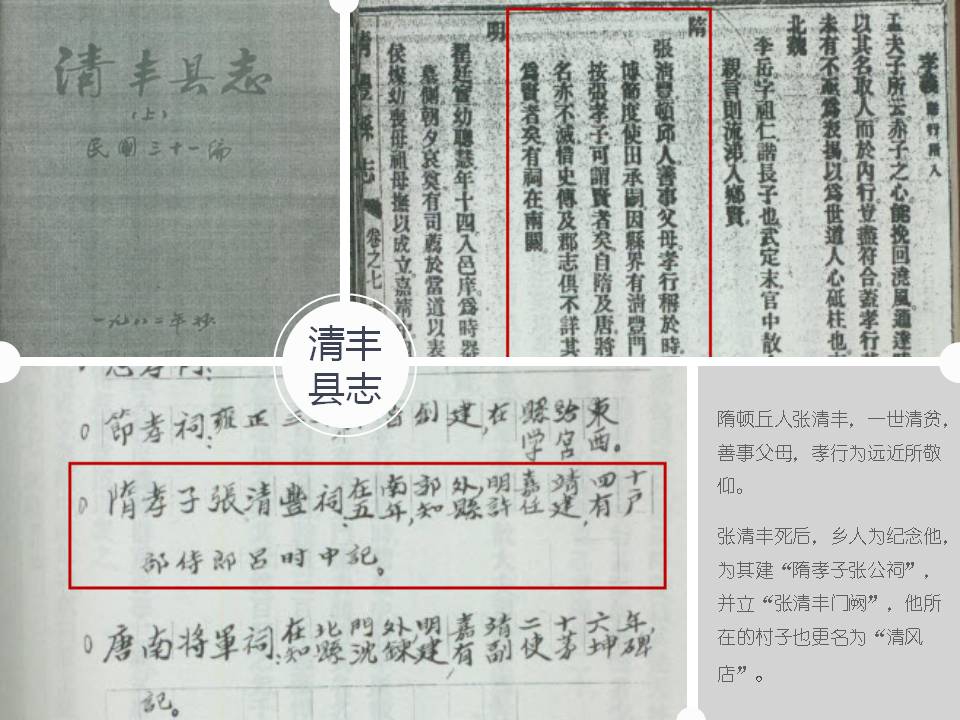 清丰县志
（上）
民国三十一编
一九八二年抄
孝義
孟夫子所云赤子之心能挽回澆風通達
以其名取人而於内行豈盡符合蓋孝行
未有不嚴為表揚以為世道人心砥柱也
北魏
李岳字祖仁諧長子也武定末官中散
親言則流涕入鄉賢
隋
張清豐頓邱人善事父母孝行稱於時
博節度使田承嗣因縣界有清豐門
按張孝子可謂賢者矣自隋及唐將
名亦不滅惜史傳及郡志俱不詳其
為賢者矣有祠在南關
明
程廷實幼聰慧年十四入邑庠為時器
墓側朝夕哀奠有司薦於當道以表
侯燦幼喪母祖母撫以成立嘉靖
清豐縣志
卷之七
清丰
县志
節孝祠:雍正三年創建,在縣學治宮東西。
隋孝子張清豐祠:在南郭外,明嘉靖四十五年,知縣許任建,有户
部侍郎呂时中記。
唐南將軍祠:在北門外,明嘉靖二十六年,知縣沈錸建,有副使茅坤碑
記。
隋顿丘人张清丰，一世清贫，
善事父母，孝行为远近所敬
仰。
张清丰死后，乡人为纪念他，
为其建“隋孝子张公祠”，
并立“张清丰门阙”，他所
在的村子也更名为“清风
店”。